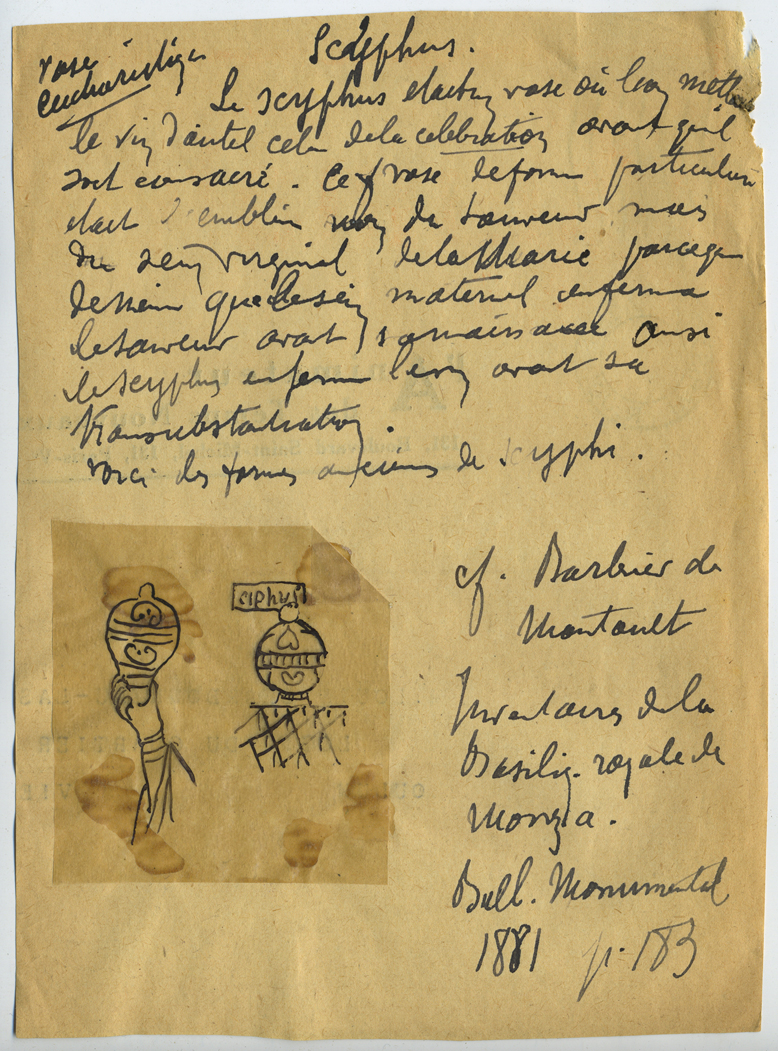 Scyphus.
vase
eucharistique
Le scyphus etait un vase où l'on mettait
le vin d'autel celui de la celebration avant qu'il
soit consacré. Ce vase de forme particulière
etait l'emblème non du Sauveur mais
du sein virginal de la Marie parceque
de même que le sein maternel enferma
le sauveur avant sa naissance ainsi
le scyphus enferme le vin avant sa
transubstantiation.
Voici des formes anciennes de scyphi.
ciphus
cf. Barbier de
Montault
Inventaires de la
Basiliq. royale de
Monza.
Bull. Monumental
1881 p. 183